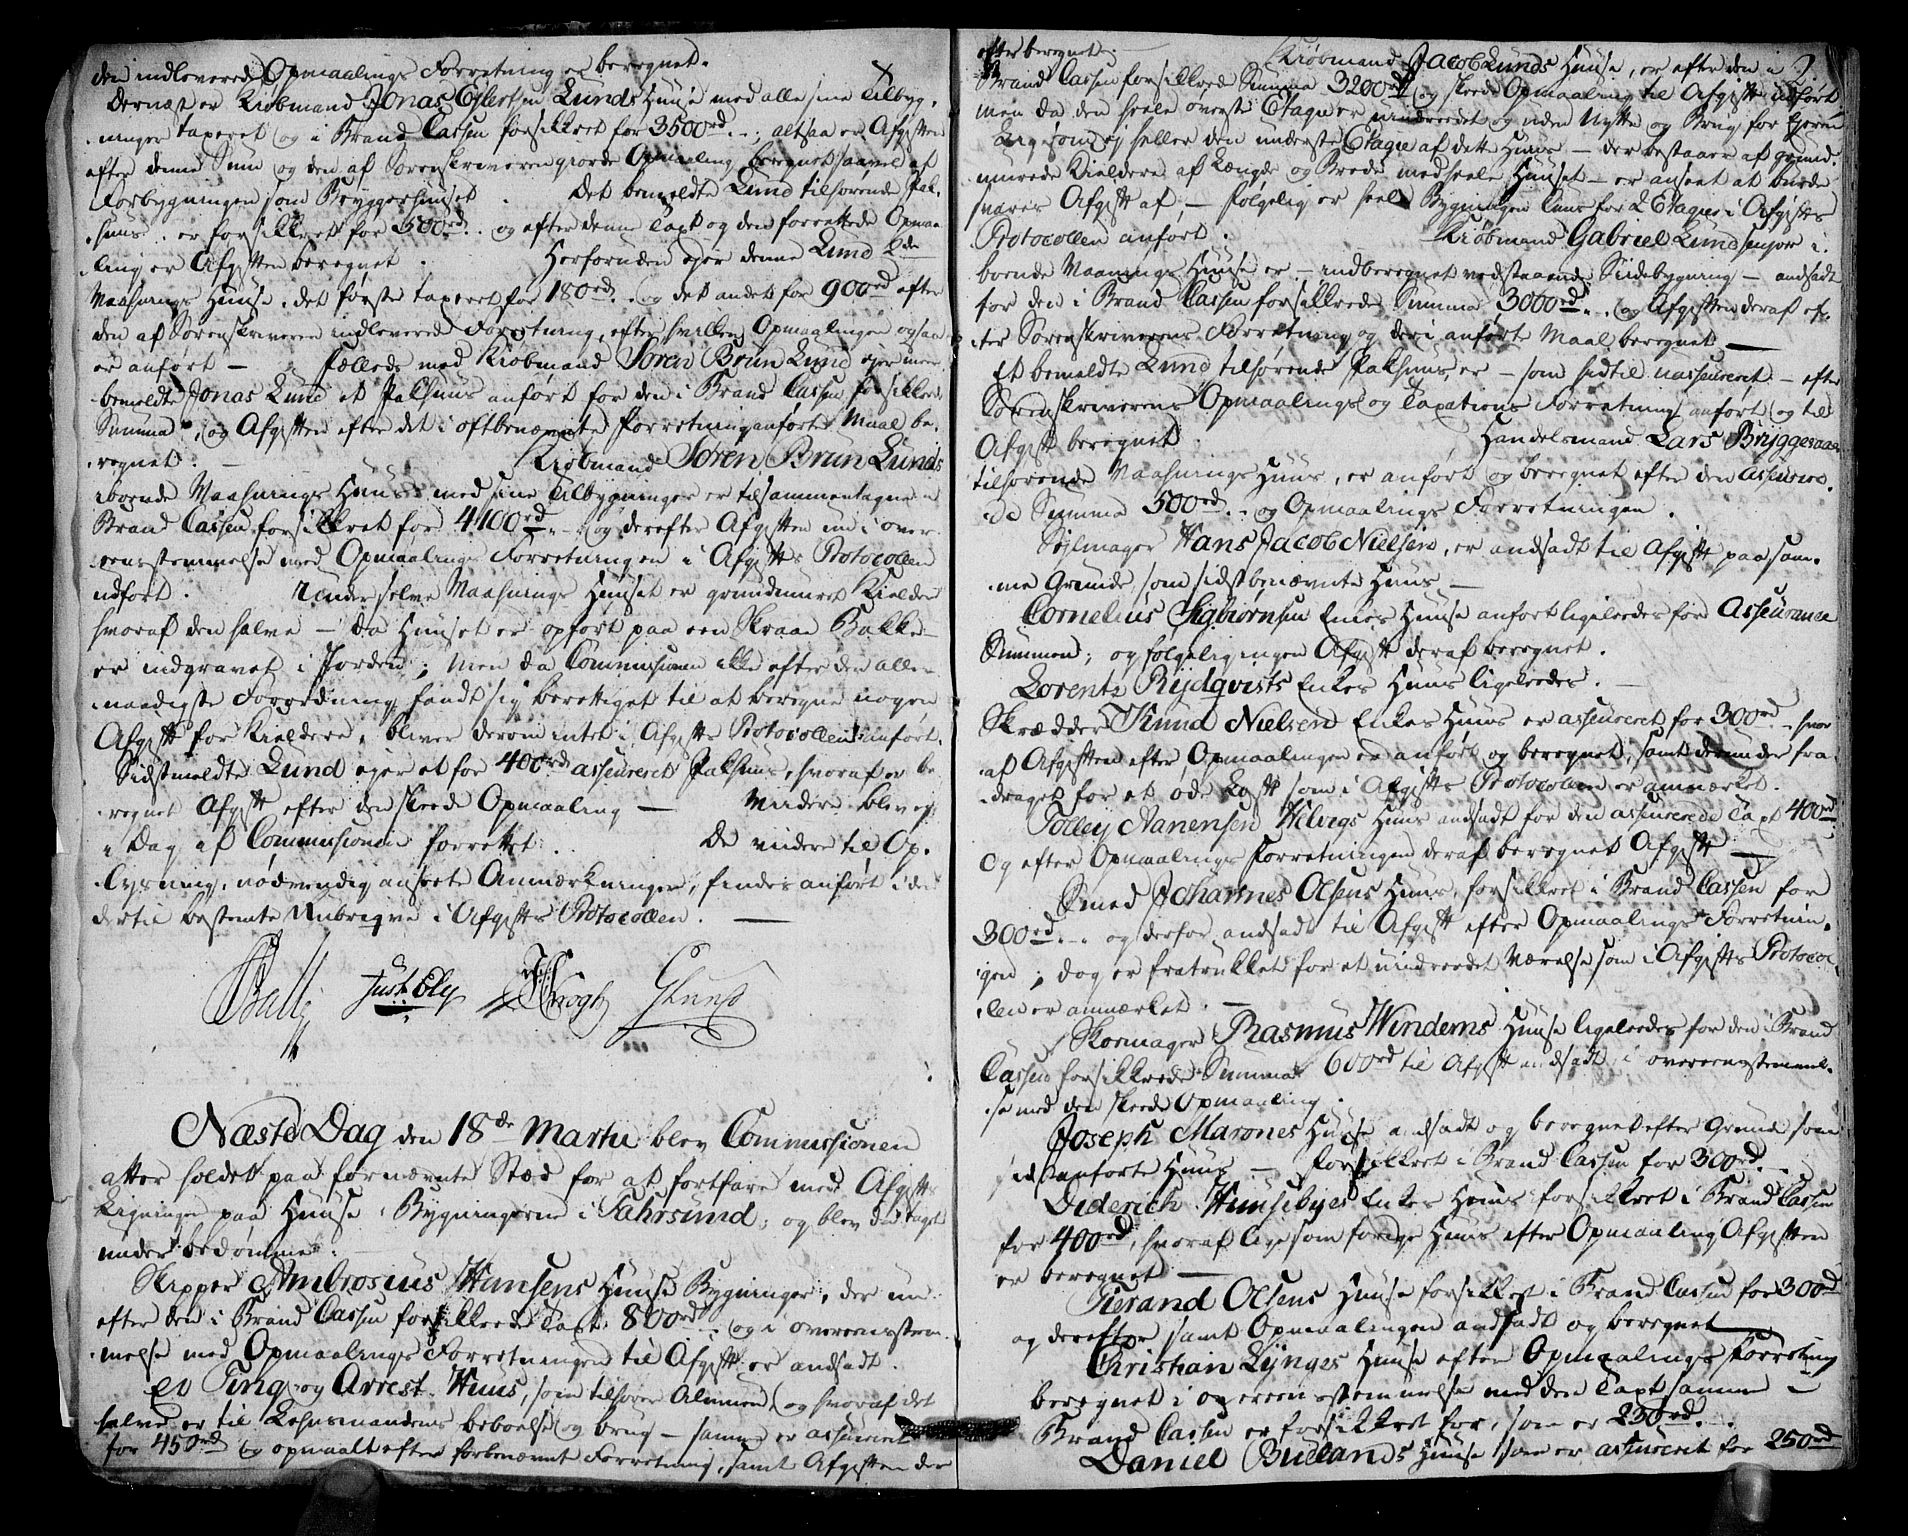 den indleverede Opmaalings Forretning er beregnet.
Dernæst er Kiøbmand Jonas Eilertsen Lunds Huuse med alle sine Tilbyg-
ninger taxeret og i Brand Cassen forsikkret for 3500rd.; altsaa er Afgiften
efter denne Sum og den af Sorenskriveren giorde Opmaaling beregnet saavel af
Forbygningen som Bryggerhuuset. Det bemeldte Lund tilhørende Pak-
huus er forsikkret for 500rd. og efter denne Taxt og den forrettede Opmaa-
ling er Afgiften beregnet. Herforuden ejer denne Lund 2de
Vaanings Huuse, det første taxeret for 180rd. og det andet for 900rd efter
den af Sorenskriveren indleverede Forretning, efter hvilken Opmaalingen ogsaa
er anført — Fælleds med Kiøbmand Søren Brun Lund ejer meer
bemeldte Jonas Lund et Pakhuus anført for den i Brand Cassen forsikkrede
Summa, og Afgiften efter det i oftbenævnte Forretning anførte Maal be-
regnet. — Kiøbmand Søren Brun Lunds
iboende Vaanings Huus med sine Tilbygninger er tilsammentagne i
Brand Cassen forsikkret for 4100rd. og derefter Afgiften nu i over-
eensstemmelse med Opmaalings Forretningen i Afgifts Protocollen
udført. Under selve Vaanings Huuset er grundmuret Kielder
hvoraf den halve — da Huuset er opført paa een Skraa Bakke —
er indgravet i Jorden; men da Commissionen ikke efter den aller-
naadigste Forordning fandt sig berettiget til at beregne nogen
Afgift for Kieldere, bliver derom intet i Afgifts Protocollen anført.
Sidstmeldte Lund ejer et for 400rd assureret Pakhuus, hvoraf er be-
regnet Afgift efter den skeede Opmaaling — Videre blev ej
i Dag af Commissionen forrettet. De videre til Op-
lysning, nødvendig ansete Anmærkninger, findes anført i den
dertil bestemte Rubrique i Afgifts Protocollen. —
Just Ely Krogh GLund
Næste Dag den 18de Martii blev Commissionen
atter holdet paa fornævnte Stæd for at fortfare med Afgifts
Ligningen paa Huuse Bygningerne i Fahrsund; og blev da taget
under bedømmelse:
Skipper Ambrosius Hansens Huuse Bygninger, der nu
efter den i Brand Cassen forsikkrede Taxt 800rd. og i overeensstem-
melse med Opmaalings Forretningen til Afgift er andsadt.
Et Ting og Arrest Huus, som tilhører Almuen, og hvoraf det
halve er til Lehnsmandens beboelse og brug — samme er assureret
for 450rd og opmaalt efter forbenævnt Forretning, samt Afgiften der
efter beregnet. — Kiøbmand Jacob Lunds Huuse, er efter den i
Brand Cassen forsikkrede Summa 3200rd og skeede Opmaaling til Afgift udført
men da den heele øverste Etage er uindreedet og uden Nytte og Brug for Ejeren
Ligesom ej heller den underste Etage af dette Huus — der bestaaer af grund-
murede Kieldere af Længde og Brede med heele Huuset — er anseet at burde
svares Afgift af, — følgelig er heele Bygningen kuns for 2 Etager i Afgifts
Protocollen anført. Kiøbmand Gabriel Lund senior i-
boende Vaanings Huuse er — indberegnet vedstaaende Siidebygning — andsadt
for den i Brand Cassen forsikkrede Summa 3000rd. og Afgiften deraf ef-
ter Sorenskriverens Forretning og deri anførte Maal beregnet —
Et bemeldte Lund tilhørende Pakhuus, er — som hidtil uassureret — efter
Sorenskriverens Opmaalings og Taxations Forretning anført og til
Afgift beregnet. Handelsmand Lars Bryggesaaes
tilhørende Vaanings Huus, er anført og beregnet efter den assurere-
de Summa 500rd. og Opmaalings Forretningen.
Sejlmager Hans Jacob Nielsen, er andsadt til Afgift paa sam-
me Grunde som sidstbenævnte Huus —
Cornelius Sigbiørnsen Enkes Huuse anført ligeleedes for Assurance
Summen; og følgelig ingen Afgift deraf beregnet.
Lorentz Rydqvists Enkes Huus ligeleedes. —
Skrædder Knud Nielsen Enkes Huus er assureret for 300rd — hvor-
af Afgiften efter Opmaalingen er anført og beregnet, samt derunder fra-
draget for et øde Loft som i Afgifts Protocollen er anmærket.
Tolley Aanensen Helvigs Huus andsadt for den assurerede Taxt 400rd
og efter Opmaalings Forretningen deraf beregnet Afgift —
Smed Johannes Olsens Huus, forsikkret i Brand Cassen for
300rd. og derfor andsadt til Afgift efter Opmaalings Forretnin-
gen; dog er fratrukket for et uindreedet Værelse som i Afgifts Protocol-
len er anmærket. —
Skomager Rasmus Windems Huuse ligeleedes for den i Brand
Cassen forsikkrede Summa 600rd til Afgift andsadt i overeensstemmel-
se med den skeede Opmaaling.
Joseph Marones Huuse andsadt og beregnet efter Grunde som
sidstanførte Huus — forsikkret i Brand Cassen for 300rd. —
Diderich Huusebyes Enkes Huus forsikkret i Brand Cassen
for 400rd, hvoraf ligesom forrige Huus efter Opmaaling Afgiften
er beregnet —
Tierand Olsens Huuse forsikkret i Brand Cassen for 300rd
og derefter samt Opmaalingen andsadt og beregnet —
Christian Lynges Huuse efter Opmaalings Forretning
beregnet i overeensstemmelse med den Taxt samme i
Brand Cassen er forsikkret for, som er 230rd. —
Daniel Budlands Huuse som er assureret for 250rd